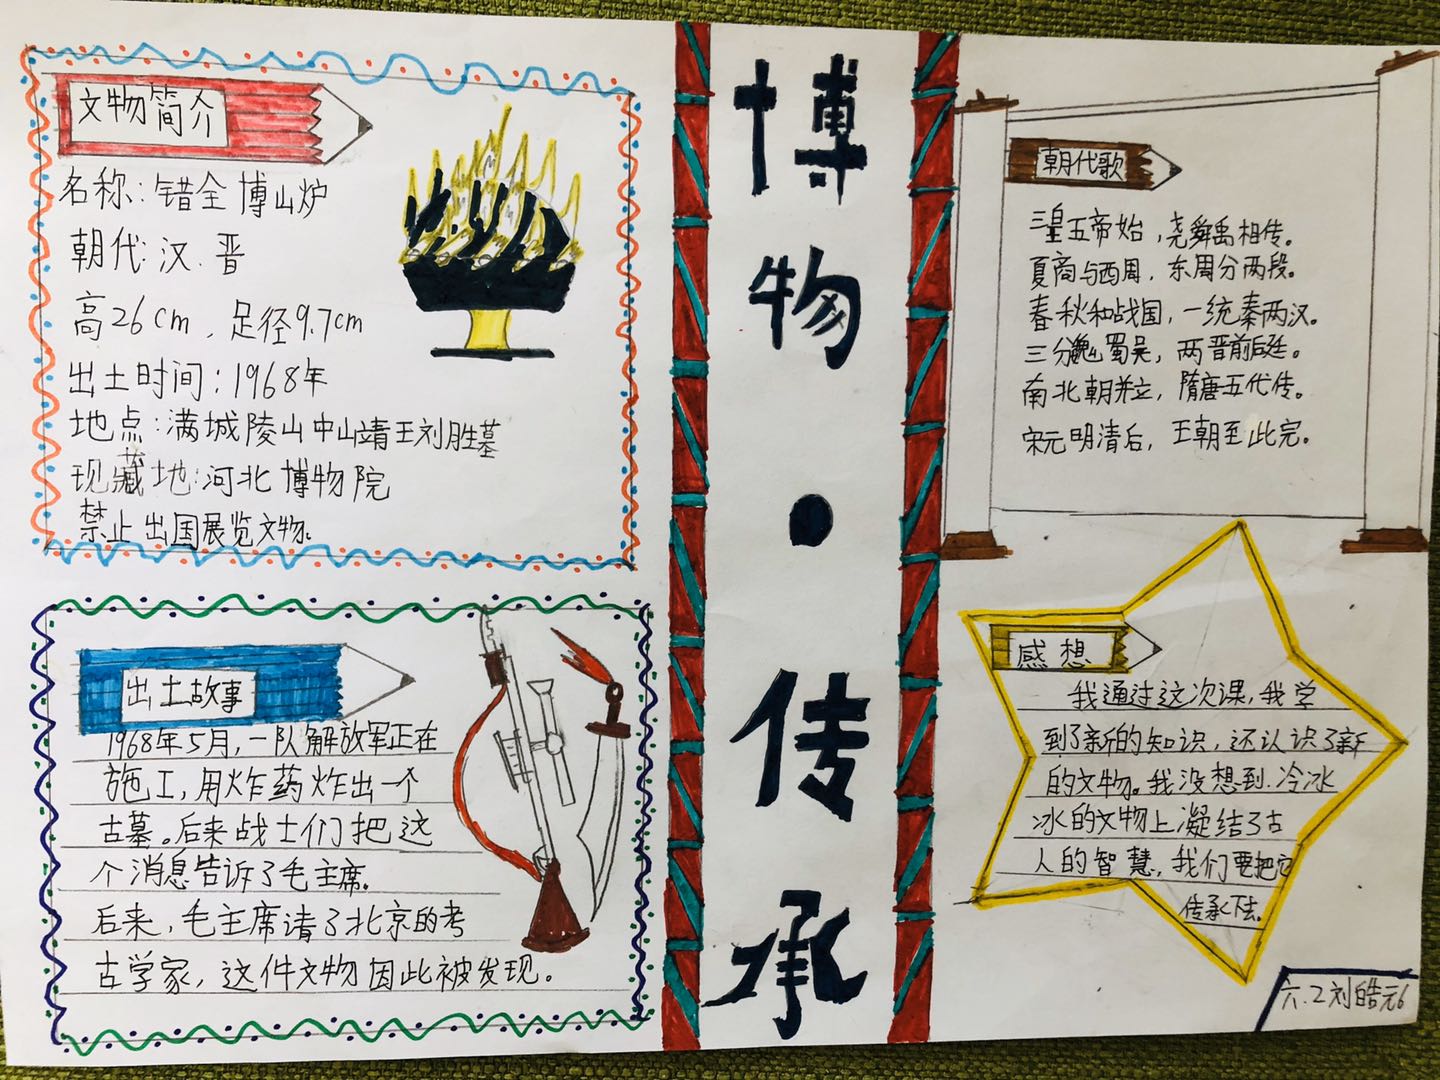 文物简介
名称:错全博山炉
朝代:汉.晋
高26cm,足径9.7cm
出土时间:1968年
地点:满城陵山中山靖王刘胜墓
现藏地:河北博物院
禁止出国展览文物。
出土故事
1968年5月,一队解放军正在
施工,用炸药炸出一个
古墓。后来战士们把这
个消息告诉了毛主席。
后来,毛主席请了北京的考
古学家,这件文物因此被发现。
博物·传承
朝代歌
三皇五帝始,尧舜禹相传。
夏商与西周,东周分两段。
春秋和战国,一统秦两汉。
三分魏蜀吴,两晋前后延。
南北朝并立,隋唐五代传。
宋元明清后,王朝至此完。
感想
我通过这次课,我学
到了新的知识,还认识了新
的文物。我没想到.冷冰
冰的文物上凝结了古
人的智慧,我们要把它
传承下去。
六.2刘皓元6